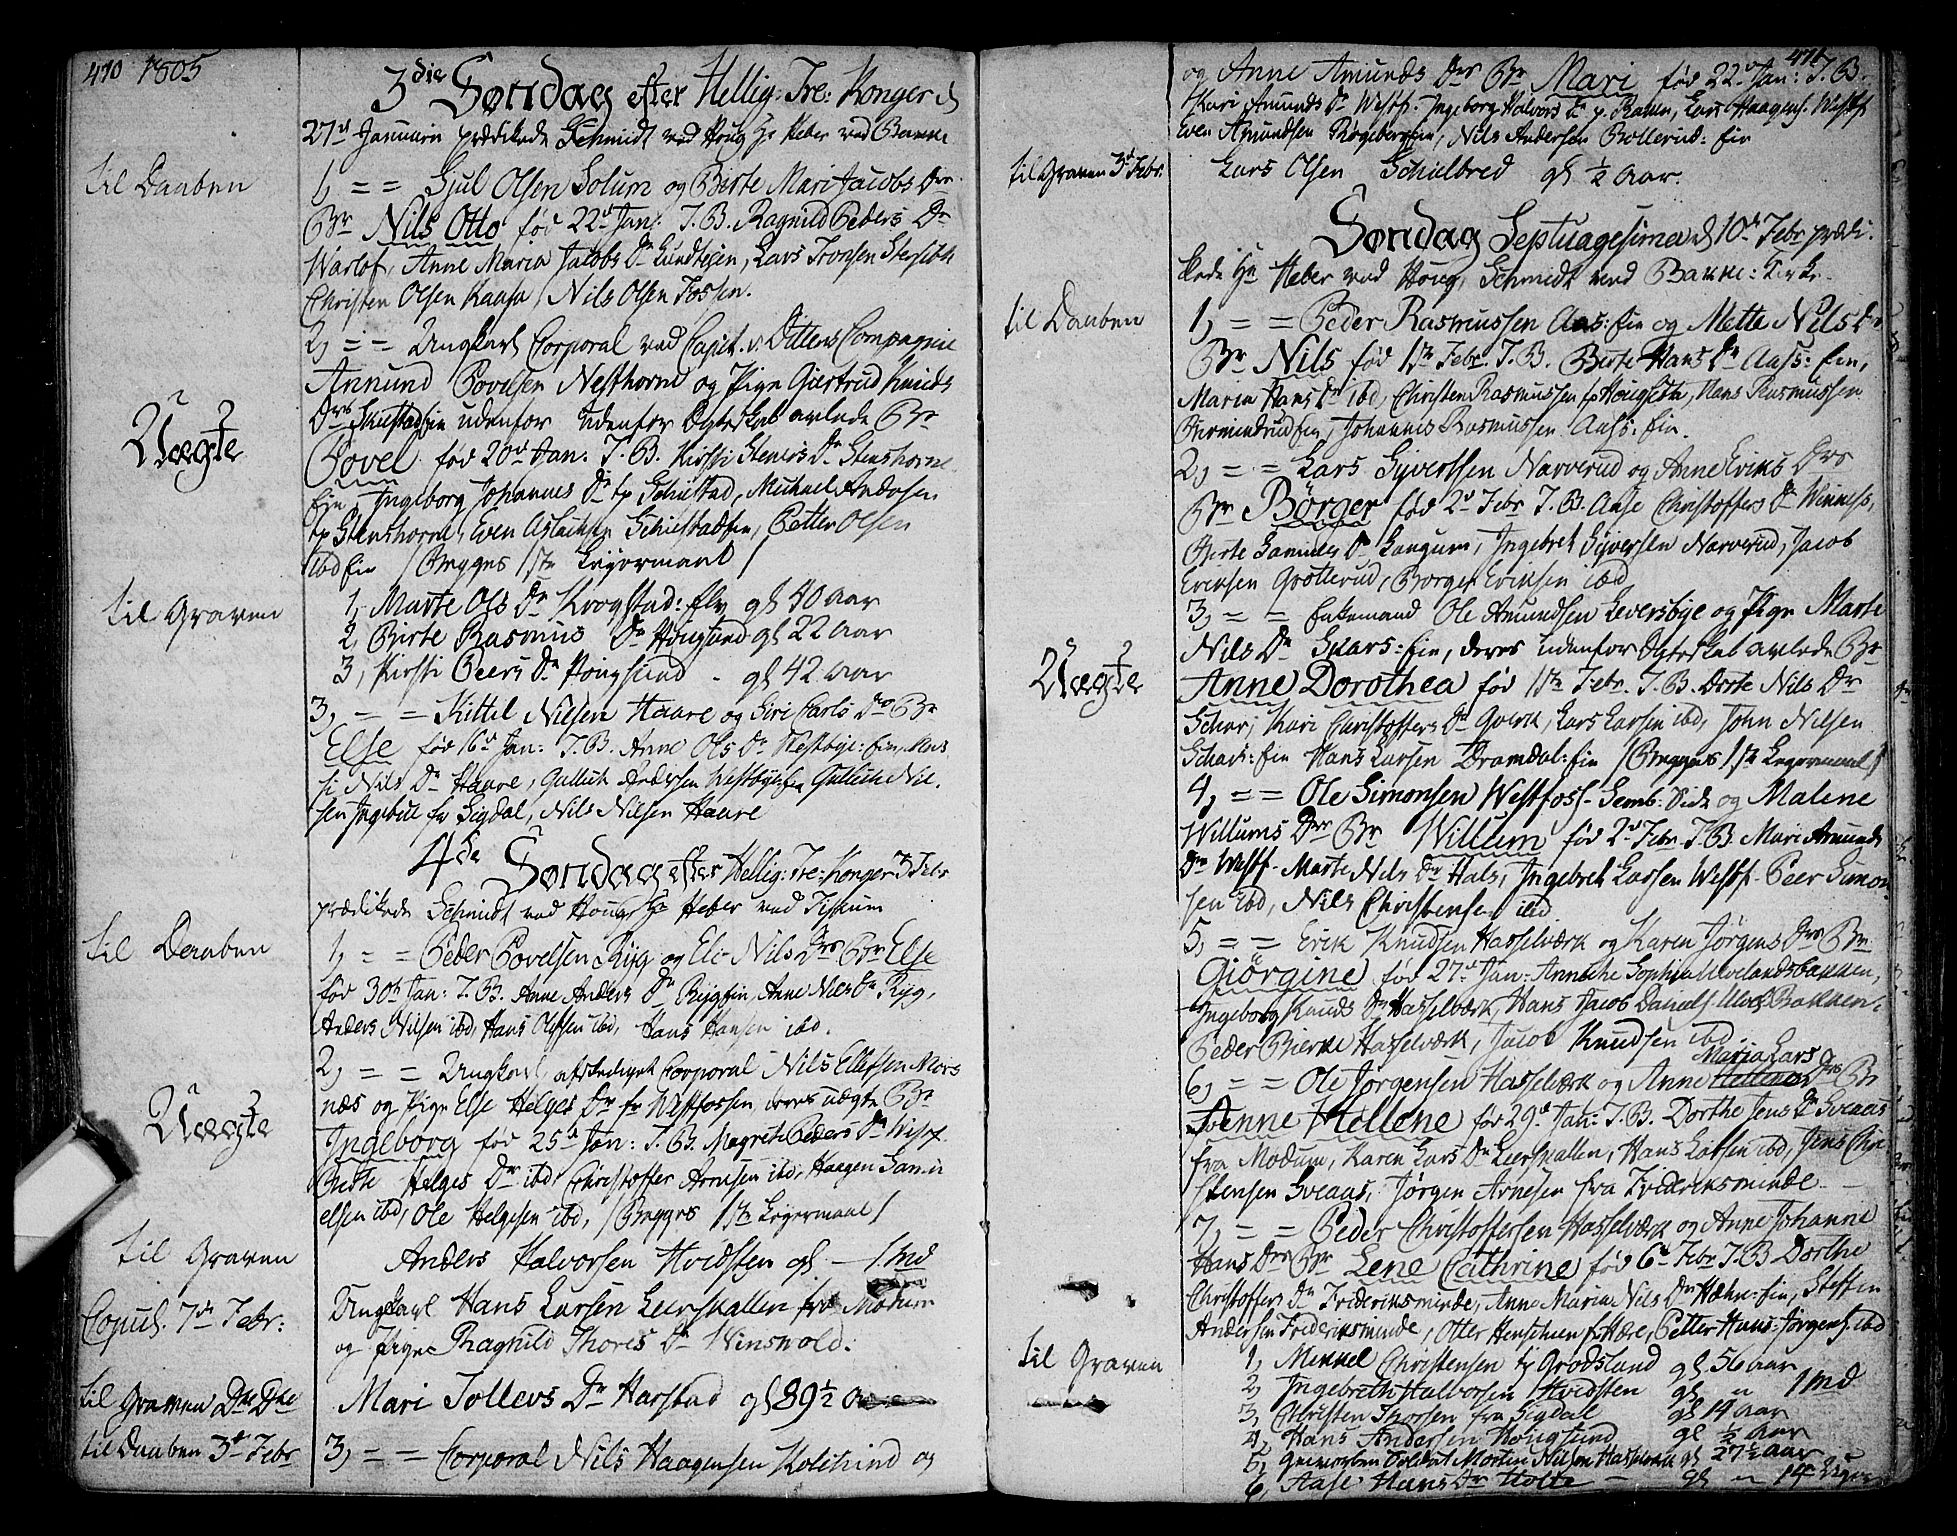 470 1805
3die Søndag efter Hellig: Tre: Konger d
27d Januarii prædikede Schmidt ved Houg Hr Heber ved Bakke
til Daaben
1, = = Gjul Olsen Solum og Birte Mari Jacobs Dr
Br Nils Otto fød 22d Jan: T.B. Ragnild Peders Dr
Warlof, Anne Maria Jacobs Dr Lundtejen, Lars
Christen Olsen Kaasa, Nils Olsen Fossen.
2, = = Ungkarl Corporal ved Capit. v. Dittens Compagnie
Uægte
Amund Povelsen Nesthorne og Pige Giertrud Knuds
Drs Skiestadfin udenfor udenfor Egteskab avlede Br
Povel fød 20d Jan: T.B. Kirsti Steners Dr Stenshorne
Ein, Ingeborg Johannes Dr p Schiestad, Michael Andersen
p Stenshorne, Even Aslachsen Schiestadfin, Petter Olsen
ibd Ein / Begges 1ste Leyermaal /
til Graven
1, Marte Ols Dr Krogstad: flv gl 40 aar
2, Birte Rasmus Dr Hougsund gl 22 aar
3, Kirsti Peers Dr Hougsund - gl 42 aar
3, = = Kittel Nilsen Haare og Siri Carls Dr Br
Else fød 16d Jan: T.B. Anne Ols Dr Westbye: Ein, Mar
si Nils Dr Haare, Gullich Andersen Westbye: Ein Gullich Nil.
sen Ingebill fr Sigdal, Nils Nilsen Haare
4de Søndag efter Hellig: Tre: Konger 3 Febr
prædikede Schmidt ved Houg Hr Heber ved Fiskum
til Daaben
1, = = Peder Povelsen Ryg og Eli Nils Drs Br Else
fød 30te Jan: T.B. Anne Anders Dr Rygfin, Anne Nils Dr Ryg,
Anders Nilsen ibd, Hans Olssen ibd, Hans Hansen ibd.
2, = = Ungkarl afskediget Corporal Nils Ellefsen Mors
Uægte
næs og Pige Else Helges Dr fr Westfossen deres uægte Br
Ingeborg fød 25d Jan: T.B. Magrete Peders Dr Westf.
Birte Helges Dr ibd, Christoffer Arnesen ibd, Haagen Sam.
elsen ibd, Ole Helgesen ibd, / Begges 1ste Leyermaal /
til Graven
Anders Halvorsen Hvidsten gl - 1 md
Copul. 7de Febr:
Ungkarl Hans Larsen Leerskallen fra Modum
og Pige Ragnild Thores Dr Winsvold.
til Graven
Mari Tollevs Dr Harstad gl 89½
til Daaben 3d Febr
3, = = Corporal Nils Haagensen Kolshind og
471
og Anne Amunds Drs Br Mari fød 22d Jan: T.B.
Kari Amunds Dr Westf. Ingeborg Halvors Dr p Ramm, Lars Haagens. Westf.
Even Amundsen Rogebergfin, Nils Andersen Bollerud: fin
til Graven 3d Febr:
Lars Olsen Schielbred gl ½ aar.
Søndag Septuagesima d 10d Febr prædi.
kede Hr Heber ved Houg, Schmidt ved Bakke: Kirke.
til Daaben
1, = = Peder Rasmussen Aas: fin og Mette Nils Dr
Br Nils fød 1ste Febr. T.B. Birte Hans Dr Aass: Ein,
Maria Hans Dr ibd, Christen Rasmussen p Hougseth, Hans Rasmussen
Bermindrudfin, Johannis Rasmussen Aass: Ein.
2, = = Lars Syvertsen Narverud og Anne Eriks Drs
Br Børger fød 2d Febr T.B. Aase Christoffers Dr Winness,
Birte Gamnes Dr Langum, Ingebret Syversen Narverud, Jacob
Eriksen Grøtterud, Borger Eriksen ibd
3, = = Enkemand Ole Amundsen Leversbye og Pige Marte
Uægte
Nils Dr Skars: fin, deres udenfor Egteskab avlede Br
Anne Dorothea fød 1ste Febr. T.B. Dorte Nils Dr
Schar, Kari Christoffers Dr Qverk, Lars Larsen ibd, John Nilsen
Schars: fin Hans Larsen Dramdal: fin / Begges 1ste Leyermaal /
4, = = Ole Simonsen Westfoss. Semb: Side og Malene
Willums Drs Br Willum fød 2d Febr. T.B. Mari Amunds
Dr Westf. Marte Nils Dr Hals, Ingebret Larsen Westf. Peer Simon
sen ibd, Nils Christensen ibd
5, = = Erik Knudsen Hasselværk og Karen Jørgens Drs Br
Giörgine fød 27d Jan: Annethe Sophia Ulvelandsbakken,
Ingeborg Knuds Dr Hasselværk, Hans Jacob Daniels Ulvel Bakken,
Peder Bierke Hasselværk, Jacob Knudsen ibd.
Maria Lars
6, = = Ole Jørgensen Hasselværk og Anne Hellena Drs Br
Anne Hellene fød 29d Jan: T.B. Dorthe Jens Dr Sveaas
fra Modum, Karen Lars Dr Leerskallen, Hans Larsen ibd, Jens Chri
stensen Sveaas, Jørgen Arnesen fra Frideriksminde
7, = = Peder Christoffersen Hasselværk og Anne Johanne
Hans Drs Br Lene Cathrine fød 6te Febr T.B Dorthe
Christoffers Dr Frideriksminde, Anne Maria Nils Dr Hæhn: fin, Steffen
Andersen Frideriksminde, Otter Henschien p Hære, Petter Hans: Jørgens. ibd
til Graven
1, Mikkel Christensen p Grodsland gl 56 aar
2, Ingebreth Halvorsen Hvidsten gl " 1 md
3, Christen Thorsen fra Sigdal gl 14 aar
4, Hans Andersen Hougsund gl ½ aar
5, Soldat Morten Nilsen Hasselværk gl 27½ aar
6, Aase Hans Dr Holte - gl " 14 Uger